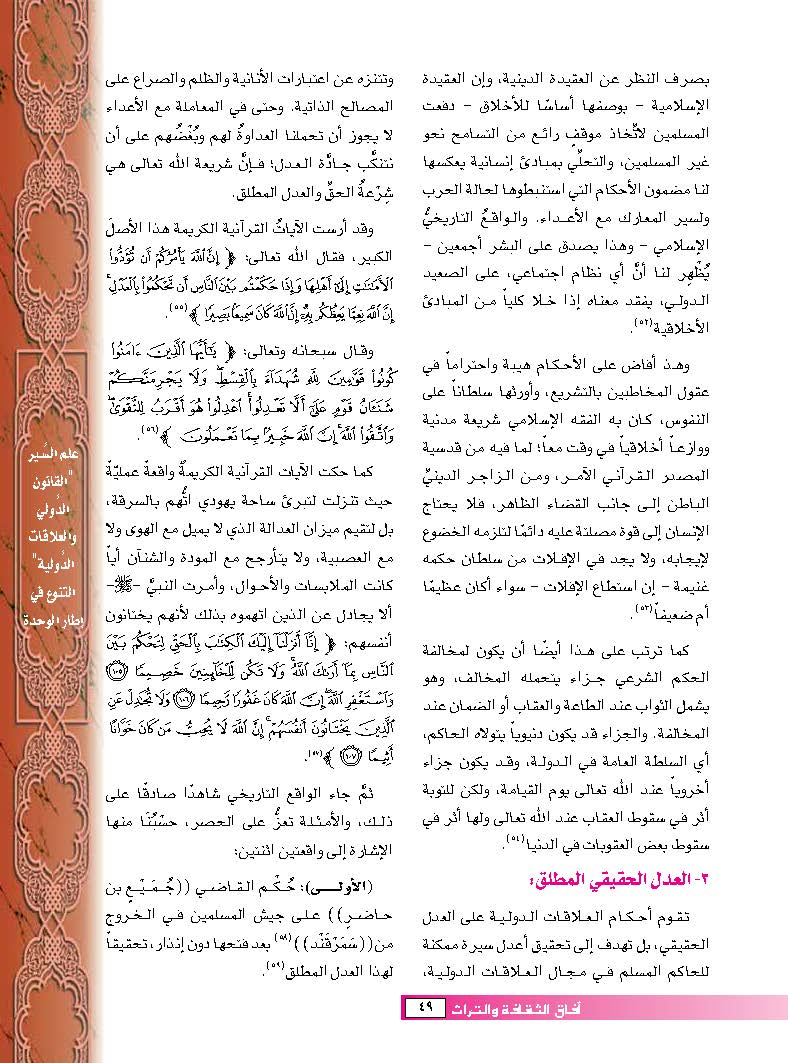 بصرف النظر عن العقيدة الدينية، وإن العقيدة
الإسلامية – بوصفها أساسًا للأخلاق – دفعت
المسلمين لاتّخاذ موقفٍ رائع من التسامح نحو
غير المسلمين، والتحلّي بمبادئ إنسانية يعكسها
لنا مضمون الأحكام التي استنبطوها لحالة الحرب
ولسير المعارك مع الأعداء. والواقعُ التاريخيُّ
الإسلامي – وهذا يصدق على البشر أجمعين –
يُظْهِر لنا أنَّ أي نظام اجتماعي، على الصعيد
الدولي، يفقد معناه إذا خلا كلياً من المبادئ
الأخلاقية(٥٢).
وهذ أفاض على الأحكام هيبة واحتراماً في
عقول المخاطبين بالتشريع، وأورثها سلطاناً على
النفوس، كان به الفقه الإسلامي شريعة مدنية
ووازعاً أخلاقياً في وقت معاً؛ لما فيه من قدسية
المصدر القرآني الآمر، ومن الزاجر الدينيِّ
الباطن إلى جانب القضاء الظاهر، فلا يحتاج
الإنسان إلى قوة مصلتة عليه دائمًا لتلزمه الخضوع
لإيجابه، ولا يجد في الإفلات من سلطان حكمه
غنيمة – إن استطاع الإفلات – سواء أكان عظيمًا
أم ضعيفاً(٥٣).
كما ترتب على هذا أيضًا أن يكون لمخالفة
الحكم الشرعي جزاء يتحمله المخالف، وهو
يشمل الثواب عند الطاعة والعقاب أو الضمان عند
المخالفة. والجزاء قد يكون دنيوياً يتولاه الحاكم،
أي السلطة العامة في الدولة، وقد يكون جزاء
أخروياً عند الله تعالى يوم القيامة، ولكن للتوبة
أثر في سقوط العقاب عند الله تعالى ولها أثر في
سقوط بعض العقوبات في الدنيا(٥٤).
٢- العدل الحقيقي المطلق:
تقوم أحكام العلاقات الدولية على العدل
الحقيقي، بل تهدف إلى تحقيق أعدل سيرة ممكنة
للحاكم المسلم في مجال العلاقات الدولية،
وتتنزه عن اعتبارات الأنانية والظلم والصراع على
المصالح الذاتية. وحتى في المعاملة مع الأعداء
لا يجوز أن تحملنا العداوةُ لهم وبُغْضُهم على أن
نتنكَّب جادَّة العدل؛ فإنَّ شريعة الله تعالى هي
شِرْعةُ الحقِّ والعدل المطلق.
وقد أرست الآياتُ القرآنية الكريمة هذا الأصلَ
الكبير، فقال الله تعالى: ﴿ إِنَّ ٱللَّهَ يَأْمُرُكُمْ أَن تُؤَدُّوا۟
ٱلْأَمَٰنَٰتِ إِلَىٰٓ أَهْلِهَا وَإِذَا حَكَمْتُم بَيْنَ ٱلنَّاسِ أَن تَحْكُمُوا۟ بِٱلْعَدْلِ ۚ
إِنَّ ٱللَّهَ نِعِمَّا يَعِظُكُم بِهِۦٓ ۗ إِنَّ ٱللَّهَ كَانَ سَمِيعًۢا بَصِيرًا ﴾(٥٥).
وقال سبحانه وتعالى: ﴿ يَٰٓأَيُّهَا ٱلَّذِينَ ءَامَنُوا۟
كُونُوا۟ قَوَّٰمِينَ لِلَّهِ شُهَدَآءَ بِٱلْقِسْطِ ۖ وَلَا يَجْرِمَنَّكُمْ
شَنَـَٔانُ قَوْمٍ عَلَىٰٓ أَلَّا تَعْدِلُوا۟ ۚ ٱعْدِلُوا۟ هُوَ أَقْرَبُ لِلتَّقْوَىٰ ۖ
وَٱتَّقُوا۟ ٱللَّهَ ۚ إِنَّ ٱللَّهَ خَبِيرٌۢ بِمَا تَعْمَلُونَ ﴾(٥٦).
كما حكت الآيات القرآنية الكريمةُ واقعةً عمليّةً
حيث تنزلت لتبرئ ساحة يهودي اتُّهم بالسرقة،
بل لتقيم ميزان العدالة الذي لا يميل مع الهوى ولا
مع العصبية، ولا يتأرجح مع المودة والشنآن أياً
كانت الملابسات والأحوال، وأمرت النبيَّ –ﷺ–
ألا يجادل عن الذين اتهموه بذلك لأنهم يختانون
أنفسهم: ﴿ إِنَّآ أَنزَلْنَآ إِلَيْكَ ٱلْكِتَٰبَ بِٱلْحَقِّ لِتَحْكُمَ بَيْنَ
ٱلنَّاسِ بِمَآ أَرَىٰكَ ٱللَّهُ ۚ وَلَا تَكُن لِّلْخَآئِنِينَ خَصِيمًا ١٠٥
وَٱسْتَغْفِرِ ٱللَّهَ ۖ إِنَّ ٱللَّهَ كَانَ غَفُورًا رَّحِيمًا ١٠٦ وَلَا تُجَٰدِلْ عَنِ
ٱلَّذِينَ يَخْتَانُونَ أَنفُسَهُمْ ۚ إِنَّ ٱللَّهَ لَا يُحِبُّ مَن كَانَ خَوَّانًا
أَثِيمًا ١٠٧ ﴾(٥٧).
ثمَّ جاء الواقع التاريخي شاهدًا صادقًا على
ذلك، والأمثلة تعزُّ على الحصر، حسْبُنَا منها
الإشارة إلى واقعتين اثنتين:
(الأولى): حُكْم القاضي ((جُمَيْع بن
حاضرٍ)) على جيش المسلمين في الخروج
من((سَمَرْقَنْد))(٥٨) بعد فتحها دون إنذار، تحقيقاً
لهذا العدل المطلق(٥٩).
علم السِّير
"القانون
الدُّولي
والعلاقات
الدُّولية"
التنوع في
إطار الوحدة
آفاق الثقافة والتراث ٤٩